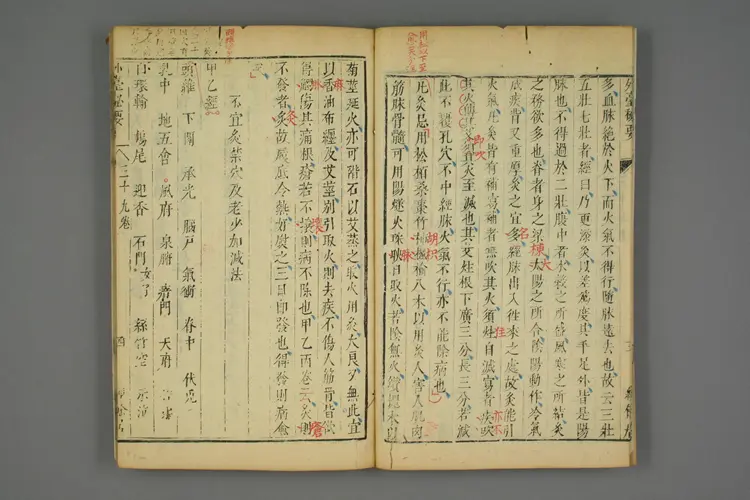 外臺秘要
多血脉絶於火下而火氣不得行隨脉遠去也故云三壯
五壯七壯者經曰乃更添灸以差爲度其手足外皆是陽
脉也不得過於二壯腹中者水榖之所盛風寒之所結灸
之務欲多也脊者身之梁大陽之所合陰陽動作冷氣
成疾背又重厚灸之宜多經脉出入徃來之處故灸能引
火氣凡灸皆有補瀉補者無吹其火須炷自滅瀉者疾吹
其火傳其艾須其火至滅也其艾炷根下廣三分長三分若減
此不覆孔穴不中經脉火氣不行亦不能除病也
凡灸忌用松栢桑棗竹榆八木以用灸人害人肌肉
筋脉骨髓可用陽燧火珠映日取火若陰無火
菊莖延火亦可磨石以艾蒸之取火用灸大良又無此宜
以香油布纏及艾莖別引取火則去疾不傷人筋骨皆欲
得觸傷其痛根瘡若不壞則病不除也甲乙丙卷云灸則
不發者灸故履底令熱好熨之三日即發也得發則病愈
不宜灸禁穴及老少加減法
甲乙經
頭維 下關 承光 腦戶 氣衝 脊中 伏兎
乳中 地五會 風府 泉腋 天府
白環俞 鳩尾 迎香 石門女子 絲竹空 承泣
三十九卷
四